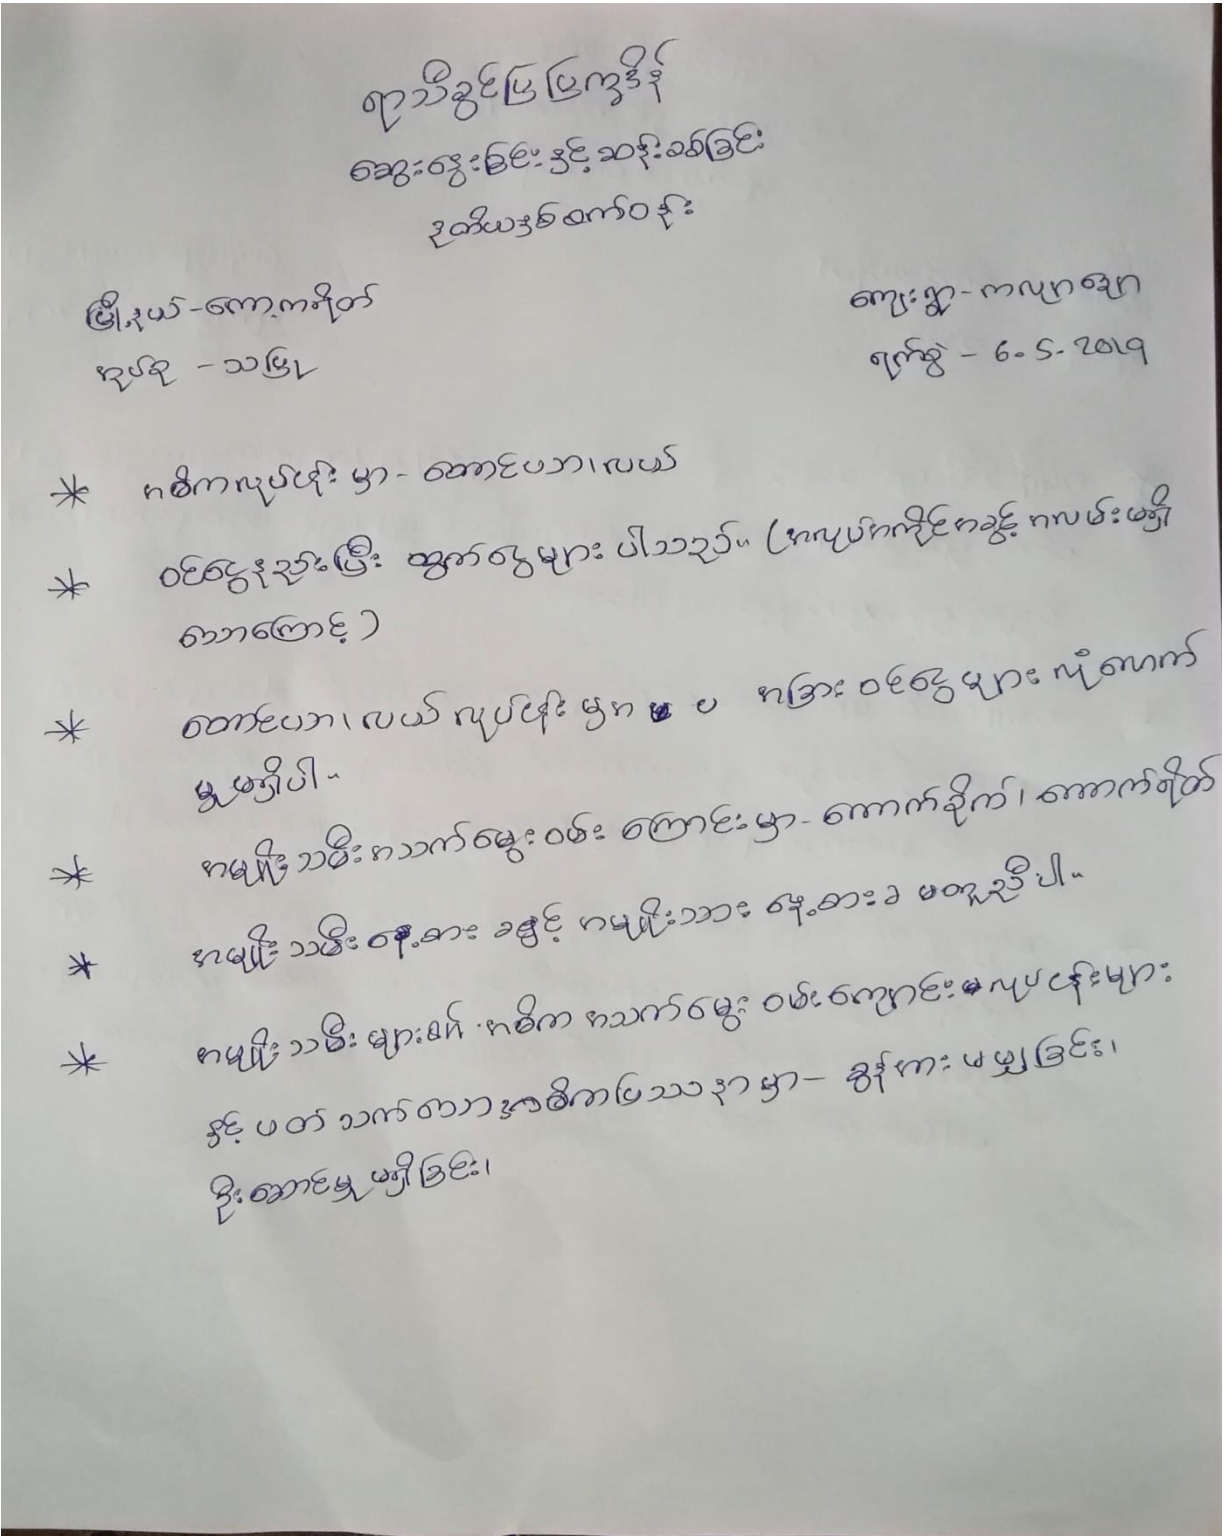 ရာသီခွင်ပြ ပြက္ခဒိန်
ဆွေးနွေးခြင်းနှင့် ဆန်းစစ်ခြင်း
ဒုတိယနှစ်စက်ဝန်း
မြို့နယ် - ကော့ကရိတ်
ကျေးရွာ - ကလျာချော
အုပ်စု - သမြု
ရက်စွဲ - 6. 5. 2019
* အဓိကလုပ်ငန်း မှာ - တောင်ပဘ၊ လယ်
* ဝင်ငွေနည်းပြီး ထွက်ငွေများ ပါသည်။ (အလုပ်အကိုင်အခွင့် အလမ်းမရှိ
သောကြောင့်)
* တောင်ပဘ၊ လယ် လုပ်ငန်း မှအ ပ အခြား ဝင်ငွေများ လုံလောက်
မှု မရှိပါ။
* အမျိုးသမီးအသက်မွေးဝမ်း ကြောင်းမှာ - ကောက်စိုက်၊ ကောက်ရိတ်
* အမျိုးသမီး နေ့စား ခနှင့် အမျိုးသား နေ့စားခ မတူညီပါ။
* အမျိုးသမီးများ၏ အဓိက အသက်မွေး ဝမ်းကျောင်း လုပ်ငန်းများ
နှင့် ပတ် သက် သောအဓိကပြဿနာမှာ - ခွန်အား မမျှခြင်း၊
ဦးဆောင်မှု မရှိခြင်း၊